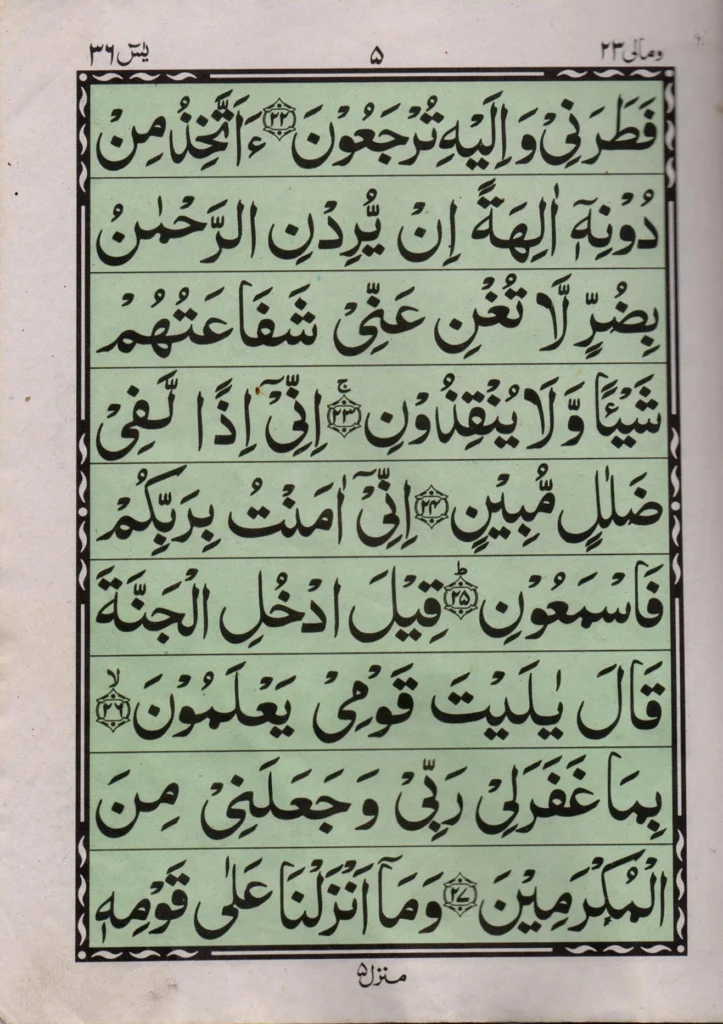 ومالی ۲۳ ۵ یٰسٓ ۳۶
فَطَرَنِیْ وَاِلَیْهِ تُرْجَعُوْنَ ﴿۲۲﴾ ءَاَتَّخِذُ مِنْ
دُوْنِهٖۤ اٰلِهَةً اِنْ یُّرِدْنِ الرَّحْمٰنُ
بِضُرٍّ لَّا تُغْنِ عَنِّیْ شَفَاعَتُهُمْ
شَیْـًٔا وَّلَا یُنْقِذُوْنِ ﴿۲۳﴾ۚ اِنِّیْۤ اِذًا لَّفِیْ
ضَلٰلٍ مُّبِیْنٍ ﴿۲۴﴾ اِنِّیْۤ اٰمَنْتُ بِرَبِّكُمْ
فَاسْمَعُوْنِ ﴿۲۵﴾ؕ قِیْلَ ادْخُلِ الْجَنَّةَ
قَالَ یٰلَیْتَ قَوْمِیْ یَعْلَمُوْنَ ﴿۲۶﴾ۙ
بِمَا غَفَرَلِیْ رَبِّیْ وَجَعَلَنِیْ مِنَ
الْمُكْرَمِیْنَ ﴿۲۷﴾ وَمَاۤ اَنْزَلْنَا عَلٰی قَوْمِهٖ
منزل ۵